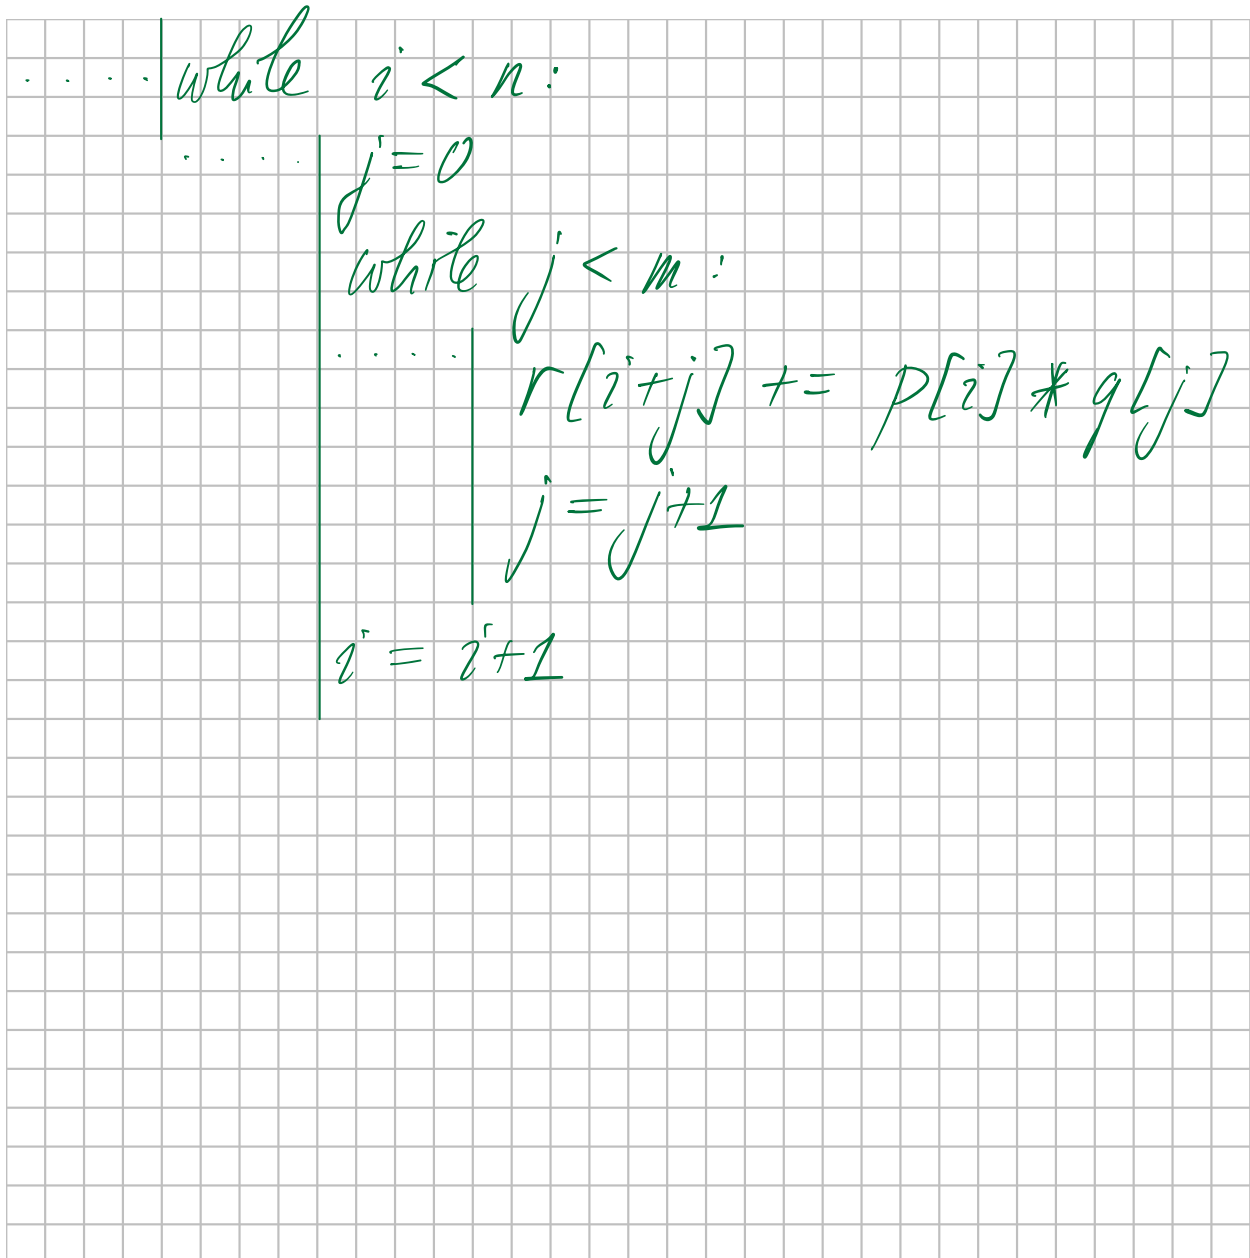 ....|while i < n:
....|j = 0
while j < m:
....|r[i+j] += p[i] * q[j]
j = j+1
i = i+1